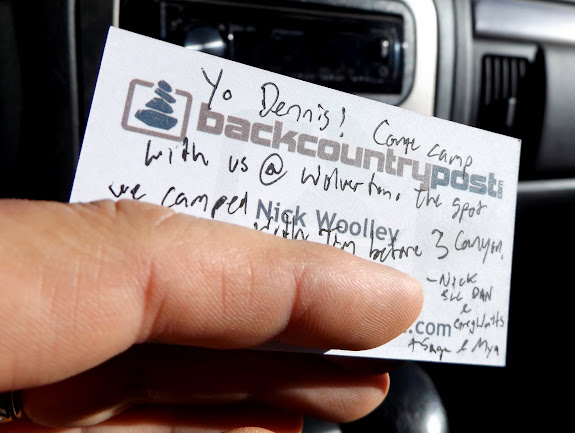 Yo Dennis! Come camp
backcountrypost.com
with us @ Wolverton. the spot
Nick Woolley
we camped with Tim before 3 Canyon.
-Nick
SLC DAN
&
Greg Watts
+ Sage & Mya
.com